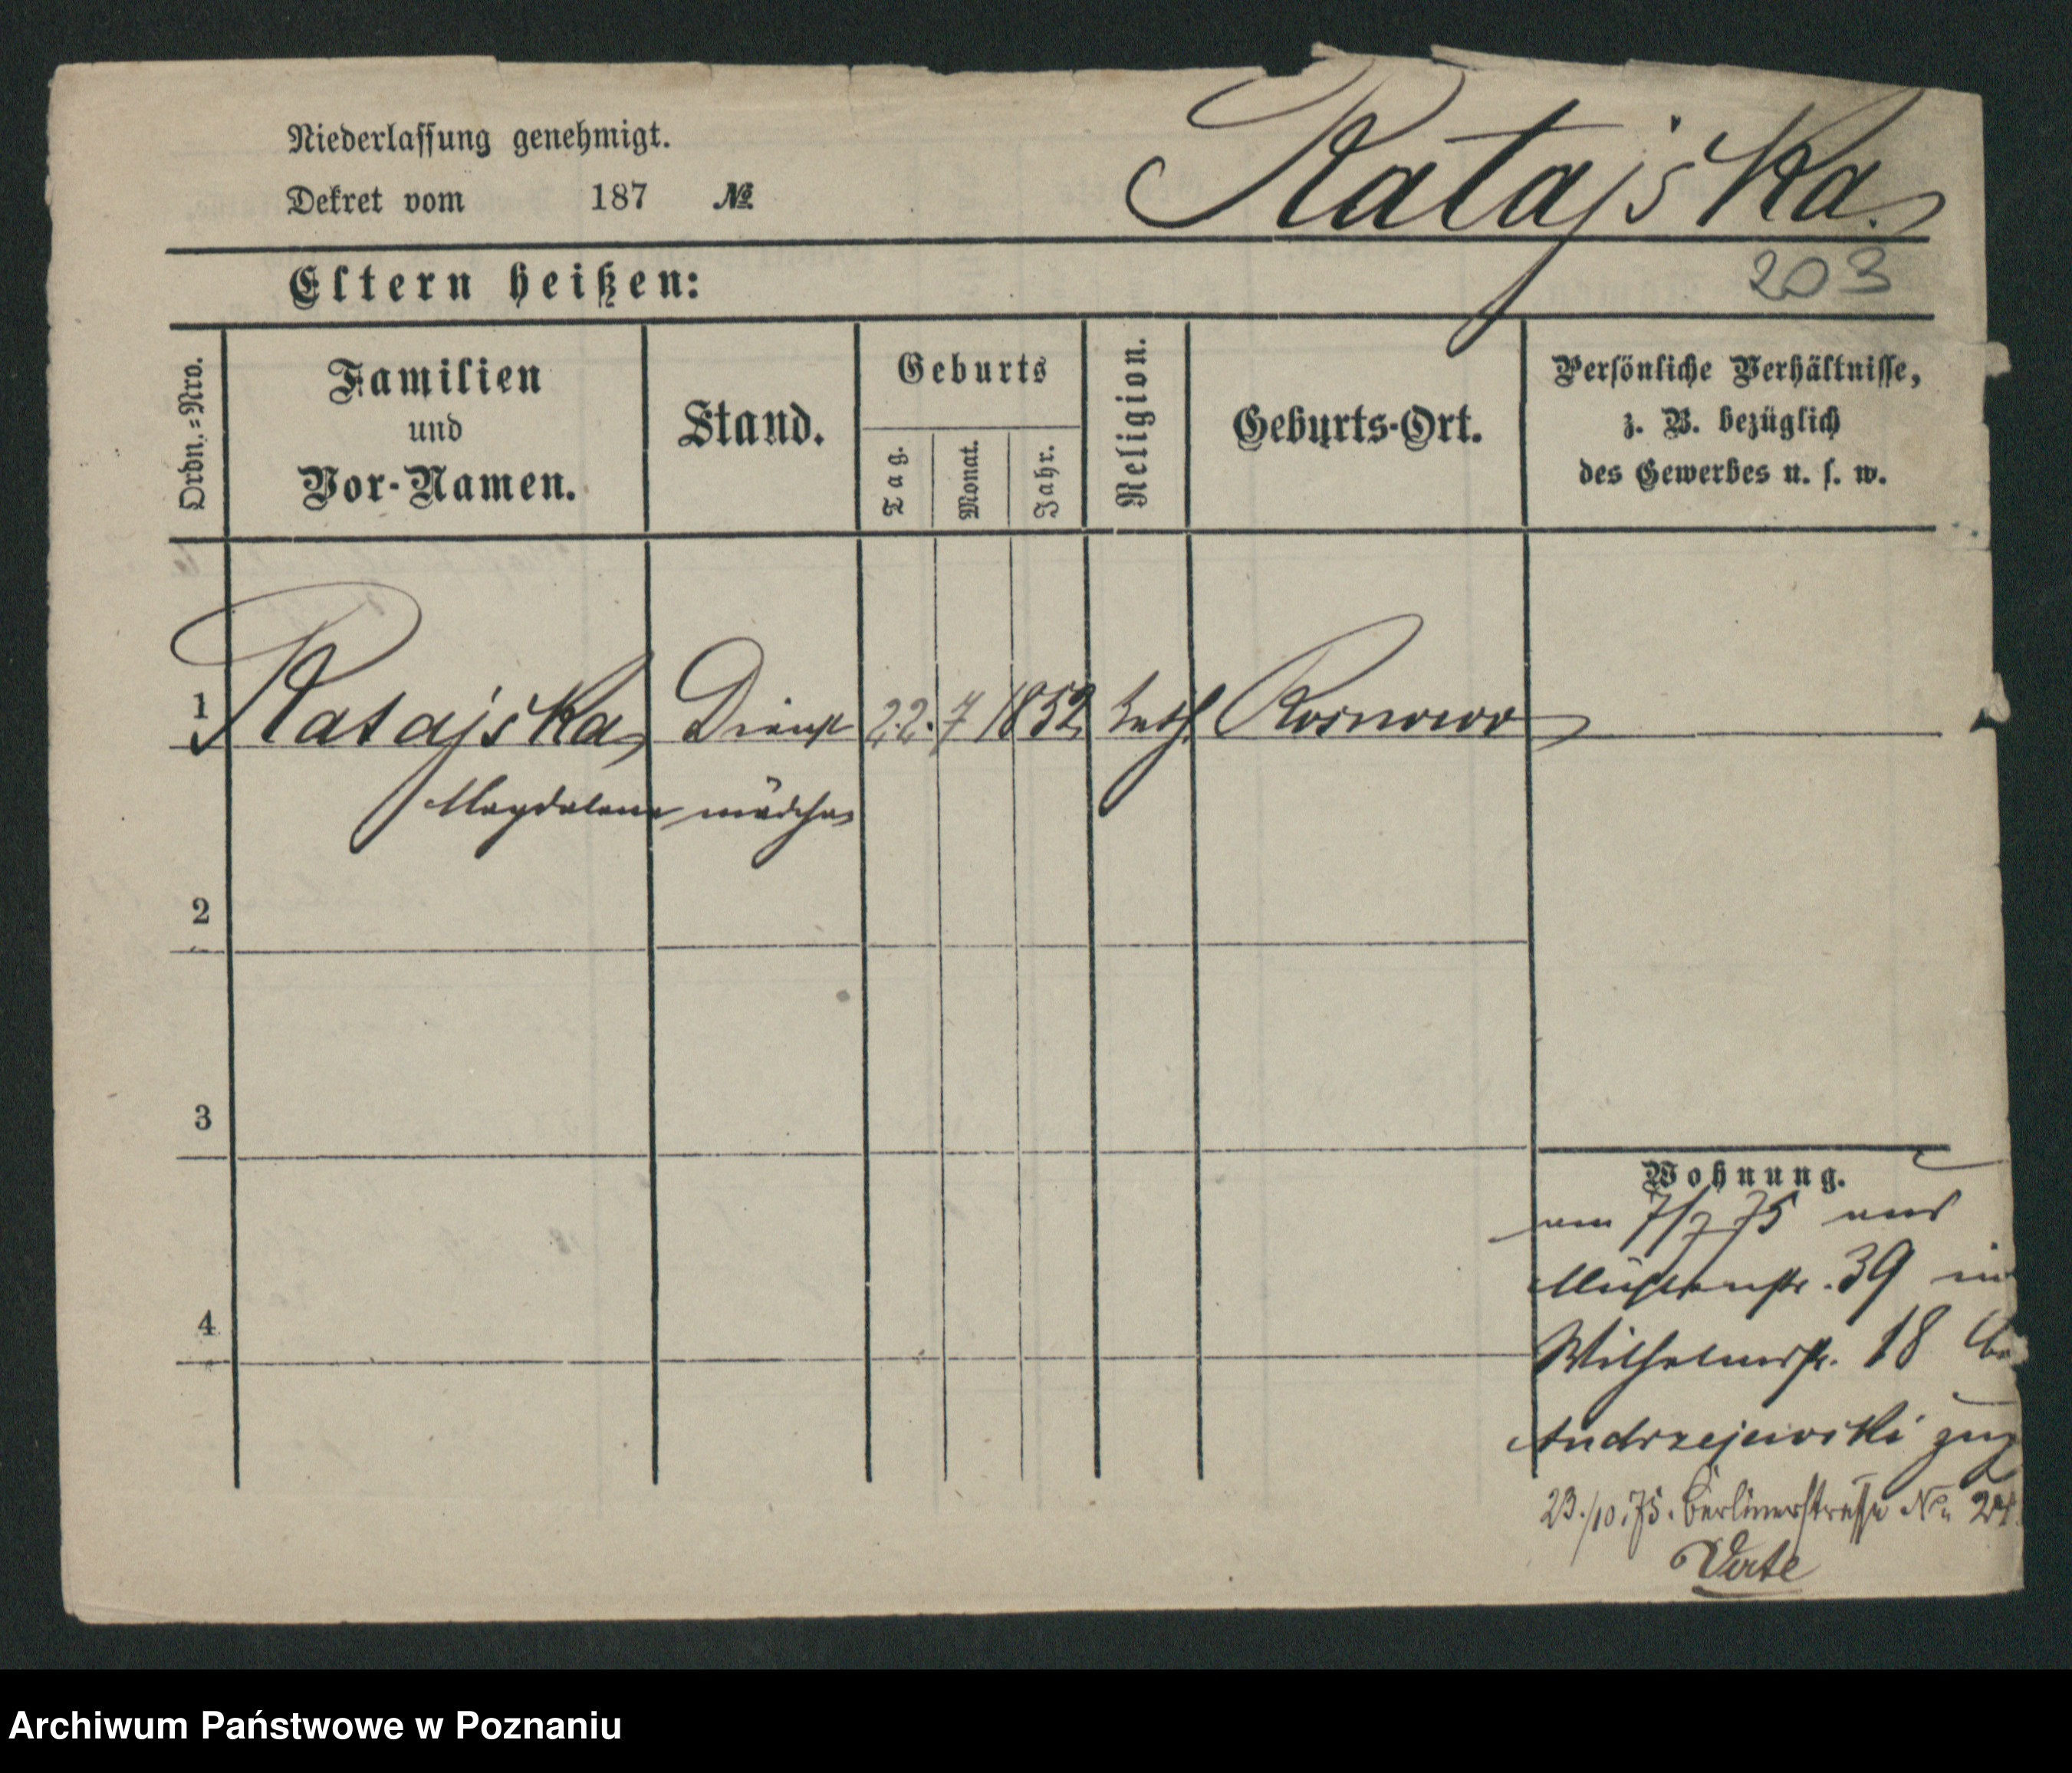 Niederlassung genehmigt.
Ratajska
Dekret vom 187 №
203
Eltern heißen:
Ordn.-Nro.
Familien
und
Vor-Namen.
Stand.
Geburts
Tag.
Monat.
Jahr.
Religion.
Geburts-Ort.
Persönliche Verhältnisse,
z. B. bezüglich
des Gewerbes u. s. w.
1 Ratajska Dienst 22. 7 1852 kath Rosnowo
Magdalena mädchen
2
3
4
Wohnung.
am 7/7 75 aus
Mühlenstr. 39 in
Wilhelmstr. 18 bei
Andrzejewski zug
23./10.75. Berlinerstrasse No
Archiwum Państwowe w Poznaniu